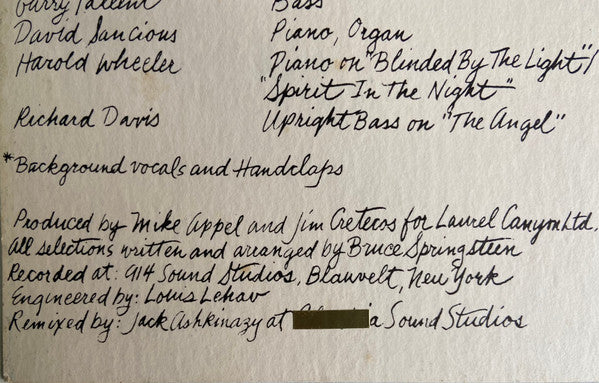 Garry Tallent Bass
David Sancious Piano, Organ
Harold Wheeler Piano on "Blinded By The Light"/
"Spirit In The Night"
Richard Davis Upright Bass on "The Angel"
*Background vocals and Handclaps
Produced by Mike Appel and Jim Cretecos for Laurel Canyon Ltd.
All selections written and arranged by Bruce Springsteen
Recorded at: 914 Sound Studios, Blauvelt, New York
Engineered by: Louis Lehav
Remixed by: Jack Ashkinazy at Sound Studios